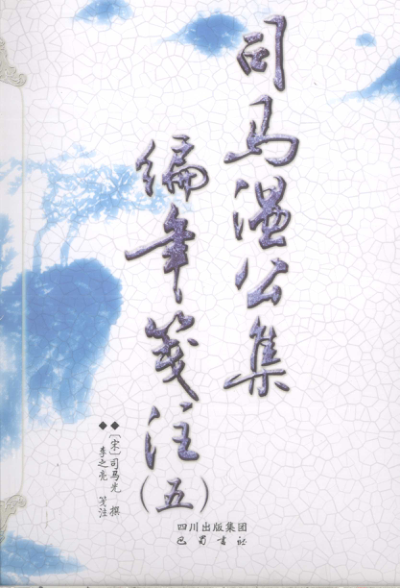 司马温公集
编年笺注
（五）
◆［宋］司马光 撰
◆李之亮 笺注
四川出版集团
巴蜀书社